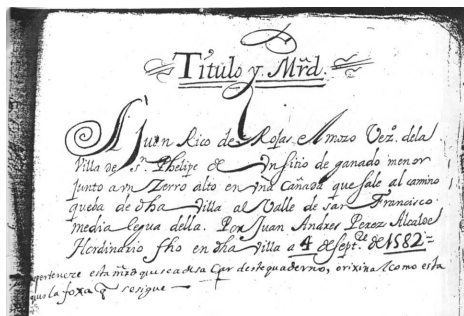 Título y Mrd.
A Juan Rico de Rojas Amozo Vezº. dela
Villa de Sn. Phelipe de Un sitio de ganado menor
junto a un Zerro alto en una Cañada que sale al camino
queba de dha Villa al Valle de san Francisco
media legua della. Por Juan Andres Perez Alcalde
Hordinario fho en dha Villa a 4 de Septe. de 1582=
perteneze esta mrd de este quaderno, orixinal como esta
la foxa q sesigue